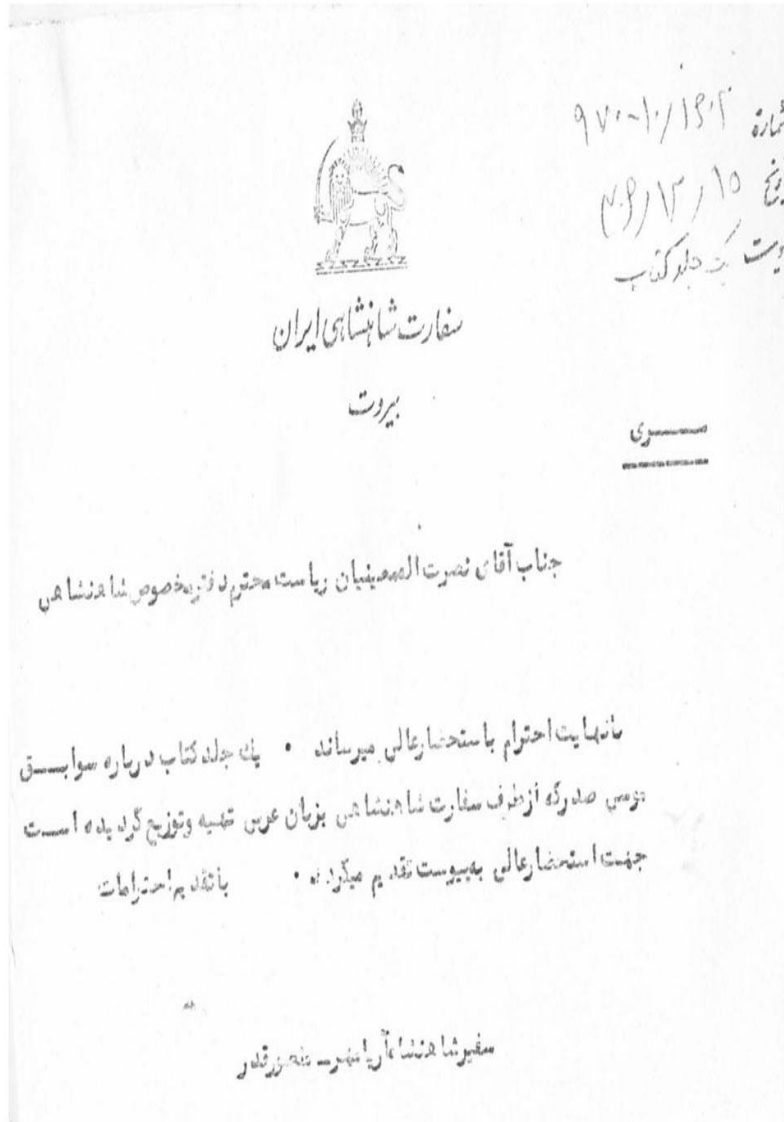 شماره ۹۷۰-۱۰/۱۶۰۲
۴۹/۱۲/۱۵
یک جلد کتاب
سفارت شاهنشاهی ایران
بیروت
ســـری
جناب آقای نصرت اله معینیان ریاست محترم دفتر مخصوص شاهنشاهی
بانهایت احترام باستحضارعالی میرساند ۰ یک جلد کتاب درباره سوابــق
موسی صدرکه ازطرف سفارت شاهنشاهی بزبان عربی تهیه وتوزیع گردیده اســت
جهت استحضارعالی به پیوست تقدیم میگردد ۰ باتقدیم احترامات
سفیرشاهنشاه آریامهرـ منصورقدر